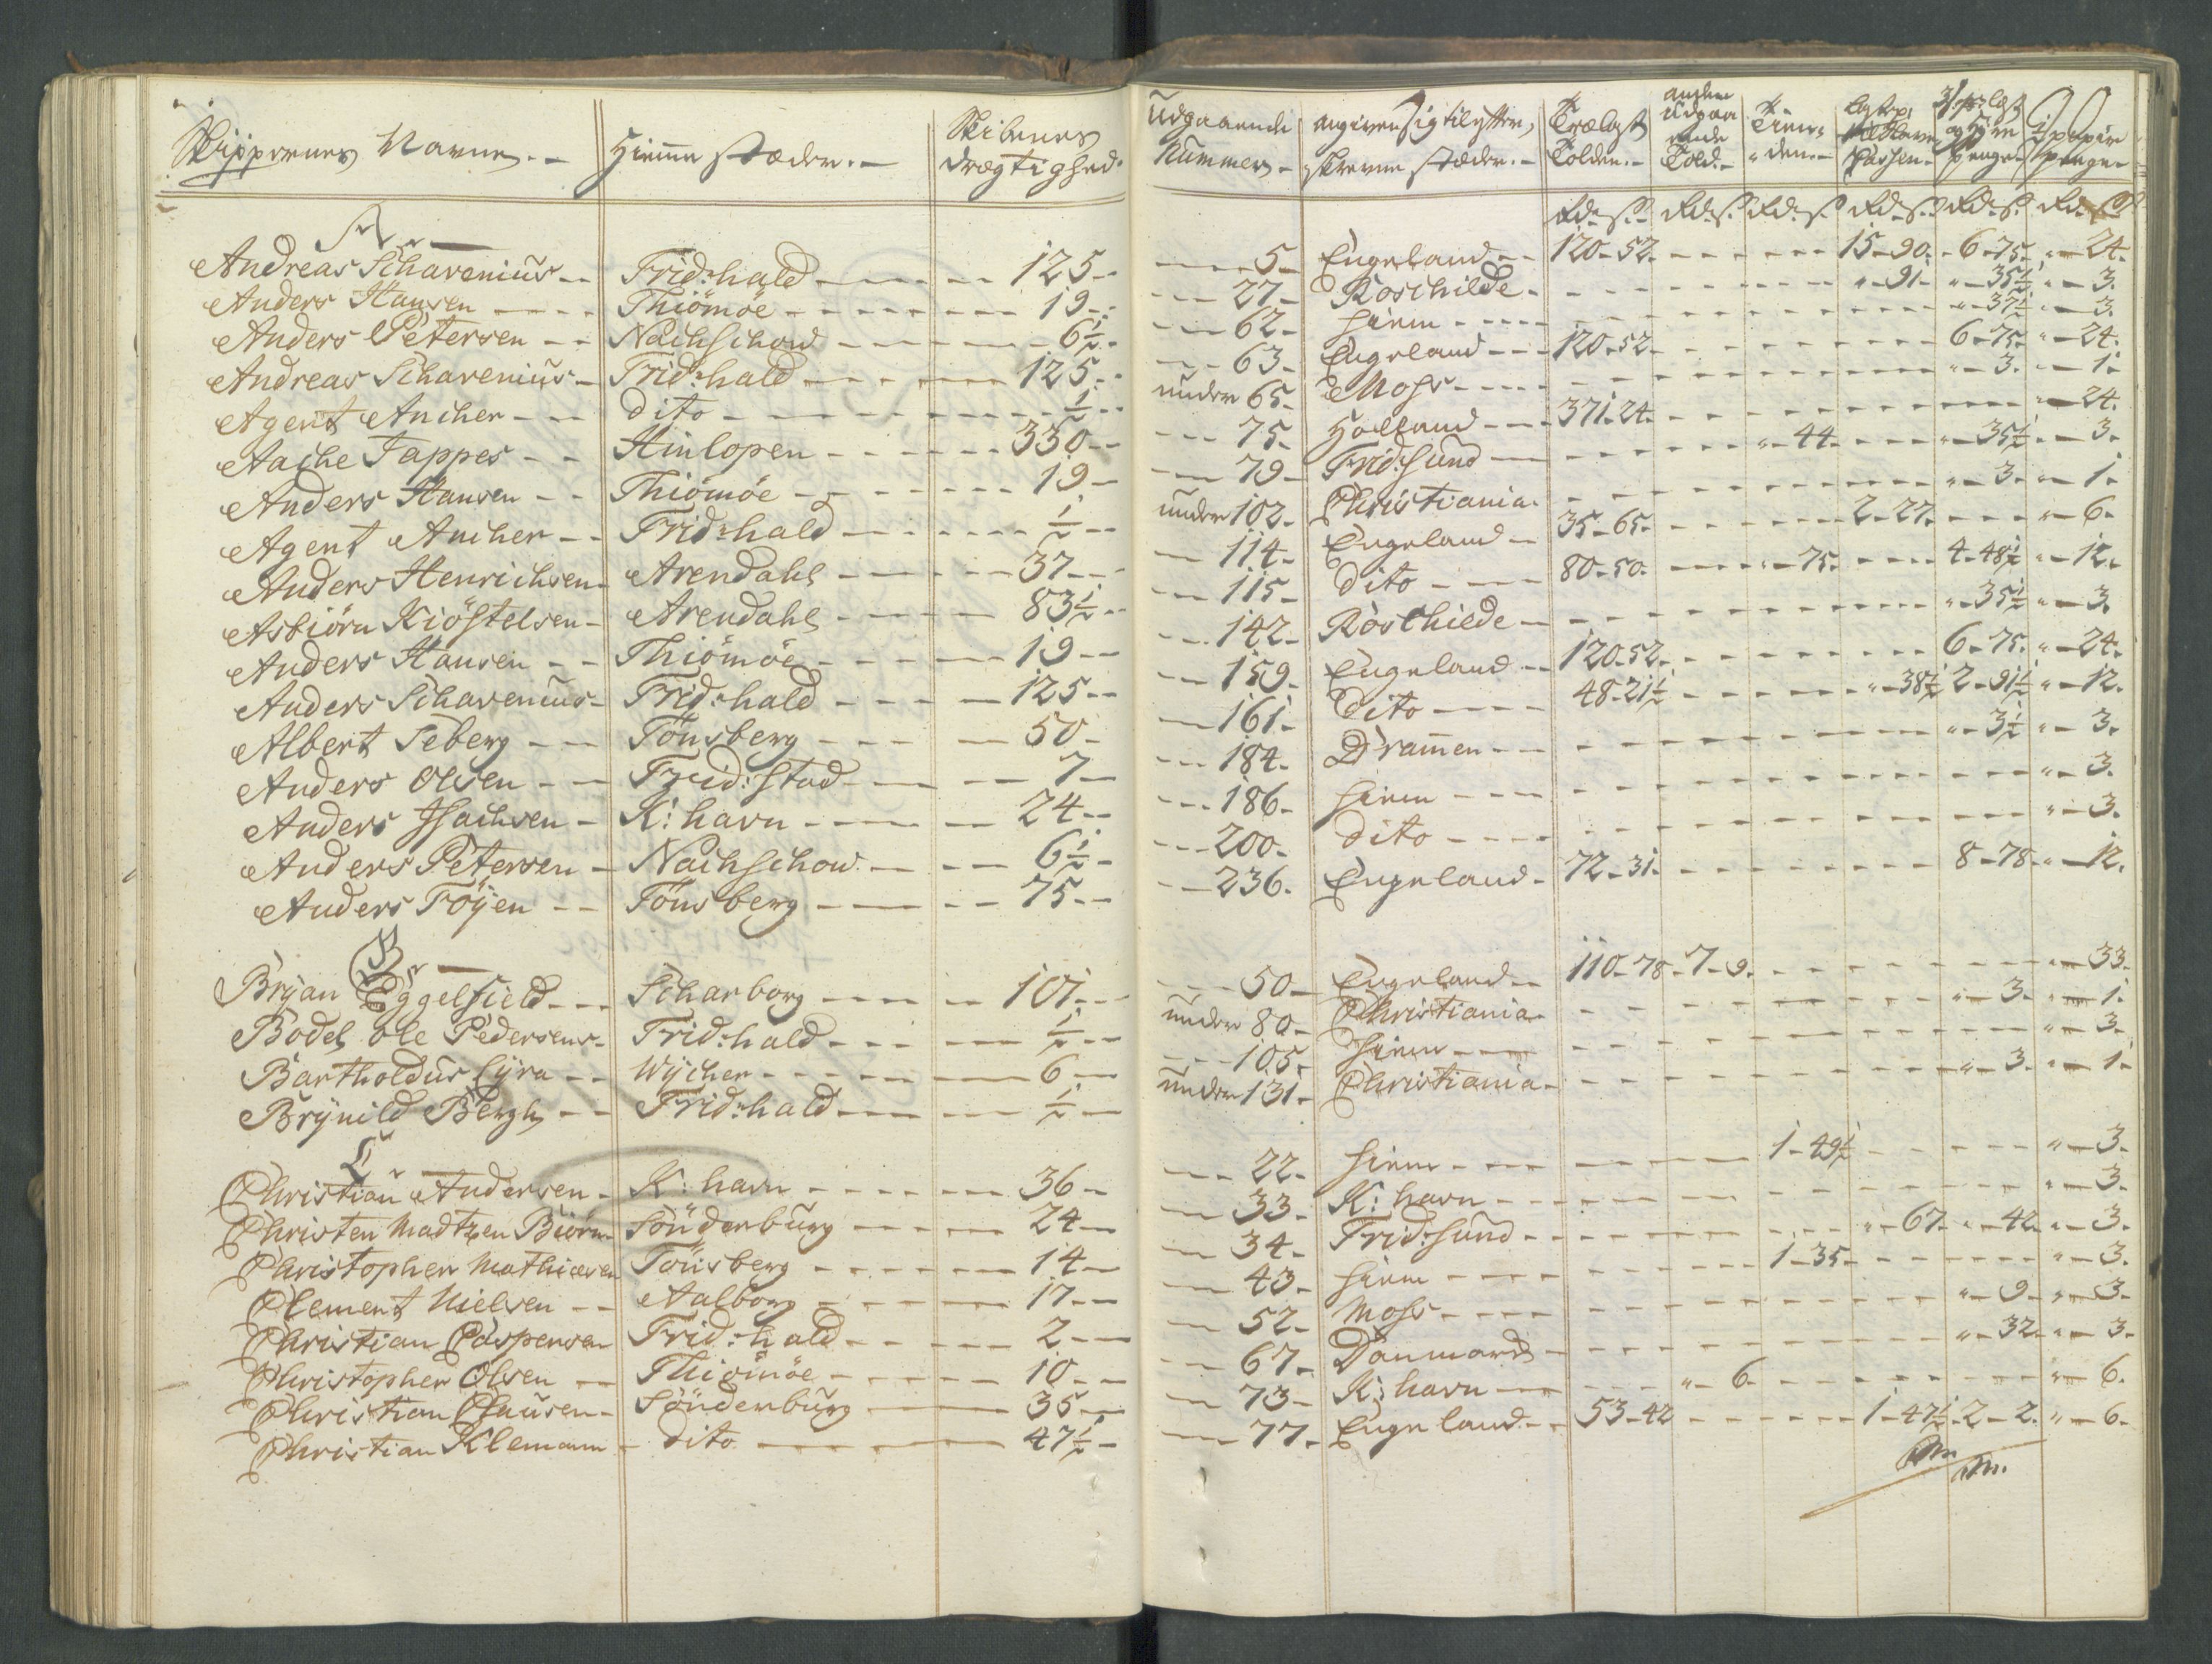 Skippernes Navne.- Hiemme stæder.- Skibenes
drægtighed. Udgaaende
Nummer- angiven sig til efter,
skrevne stæder.- Trælast
Tolden.- anden
Udgaa
ende
Told.- Tien-
den.-
Rd. s. Rd. s. Rd. s. Rd. s. Rd. s. Rd. s.
A.
Andreas Scharenius -- Frid:hald --- 125 -- 5 - Engeland -- 120-52 --- 15-90. - 6-75. " - 24.
Anders Hansen --- Thiömöe --- 19 -- 27 - Roschilde --- "-91- "-35½ " - 3.
Anders Petersen -- Nachschow --- 6½ -- 62 - hiem --- "-37½ " - 3.
Andreas Scharenius - Frid:hald --- 125 -- 63 - Engeland -- 120-52 --- 6-75. " - 24.
Agent Ancher -- dito --- ½ -- under 65 - Moss --- " - 3. " - 1.
Aache Tappes -- Hinlopen --- 330 -- 75 - Holland -- 371-24. --- " - 24.
Anders Hansen -- Thiömöe --- 19 - 79 - Frid:sund --- "-44. --- "-35½ " - 3.
Agent Ancher -- Frid:hald --- ½ -- under 102 - Christiania --- " - 3. " - 1.
Anders Henrichsen - Arendahl --- 37 -- 114 - Engeland -- 35-65. --- 2-27. --- " - 6.
Asbiörn Kiöstelsen - Arendahl --- 83½ -- 115 - dito --- 80-50. --- "-75. --- 4-48½ " - 12.
Anders Hansen -- Thiömöe --- 19 -- 142 - Roschilde --- "-35½ " - 3.
Anders Scharenius - Frid:hald --- 125 -- 159 - Engeland -- 120-52. --- 6-75. " - 24.
Albert Seberg -- Tönsberg --- 50 - 161 - dito --- 48-21½ --- "-38½ 2-91½ " - 12.
Anders Olsen -- Frid:stad --- 7 - 184 - Drammen --- "-3½ " - 3.
Anders Isachsen - K:havn --- 24 -- 186 - hiem --- " - 3.
Anders Petersen - Nachschow --- 6½ - 200 - dito --- " - 3.
Anders Föÿen -- Tönsberg --- 75 -- 236. Engeland - 72-31. --- 8-78. " - 12.
B.
Brÿan Eggelfield -- Scharborg --- 101 -- 50 - Engeland -- 110-78 - 7-9. --- " - 33.
Bodel ole Pedersens - Frid:hald --- ½ -- under 80 - Christiania --- " - 3. " - 1.
Bartholdus Cÿra -- Wÿcher --- 6 - 105. hiem --- " - 3.
Brÿnild Bergh -- Frid:hald --- ½ - under 131 - Christiania --- " - 3. " - 1.
C.
Christian Andersen - K:havn --- 36 - 22 - hiem --- 1-49½ --- " - 3.
Christen Madtzen Biörn - Sönderburg --- 24 - 33 - K:havn --- " - 3.
Christopher Mathiesen Tönsberg --- 14 - 34 - Frid:sund --- "-67. "-42. " - 3.
Clement Nielsen -- Aalborg --- 17 -- 43 - hiem --- 1-35 --- " - 3.
Christian Caspersen Frid:hald --- 2 -- 52 - Moss --- " - 9. " - 3.
Christopher Olsen -- Thiömöe --- 10 -- 67 - Danmark --- "-32. " - 3.
Christian Clausen - Sönderburg --- 35 - 73 - K:havn --- " - 6. --- " - 6.
Christian Klemann - dito --- 47½ - 77 - Engeland -- 53-42 --- 1-47½ 2-2. " - 6.